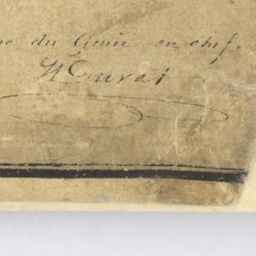 du Génie en chef.
H Duval